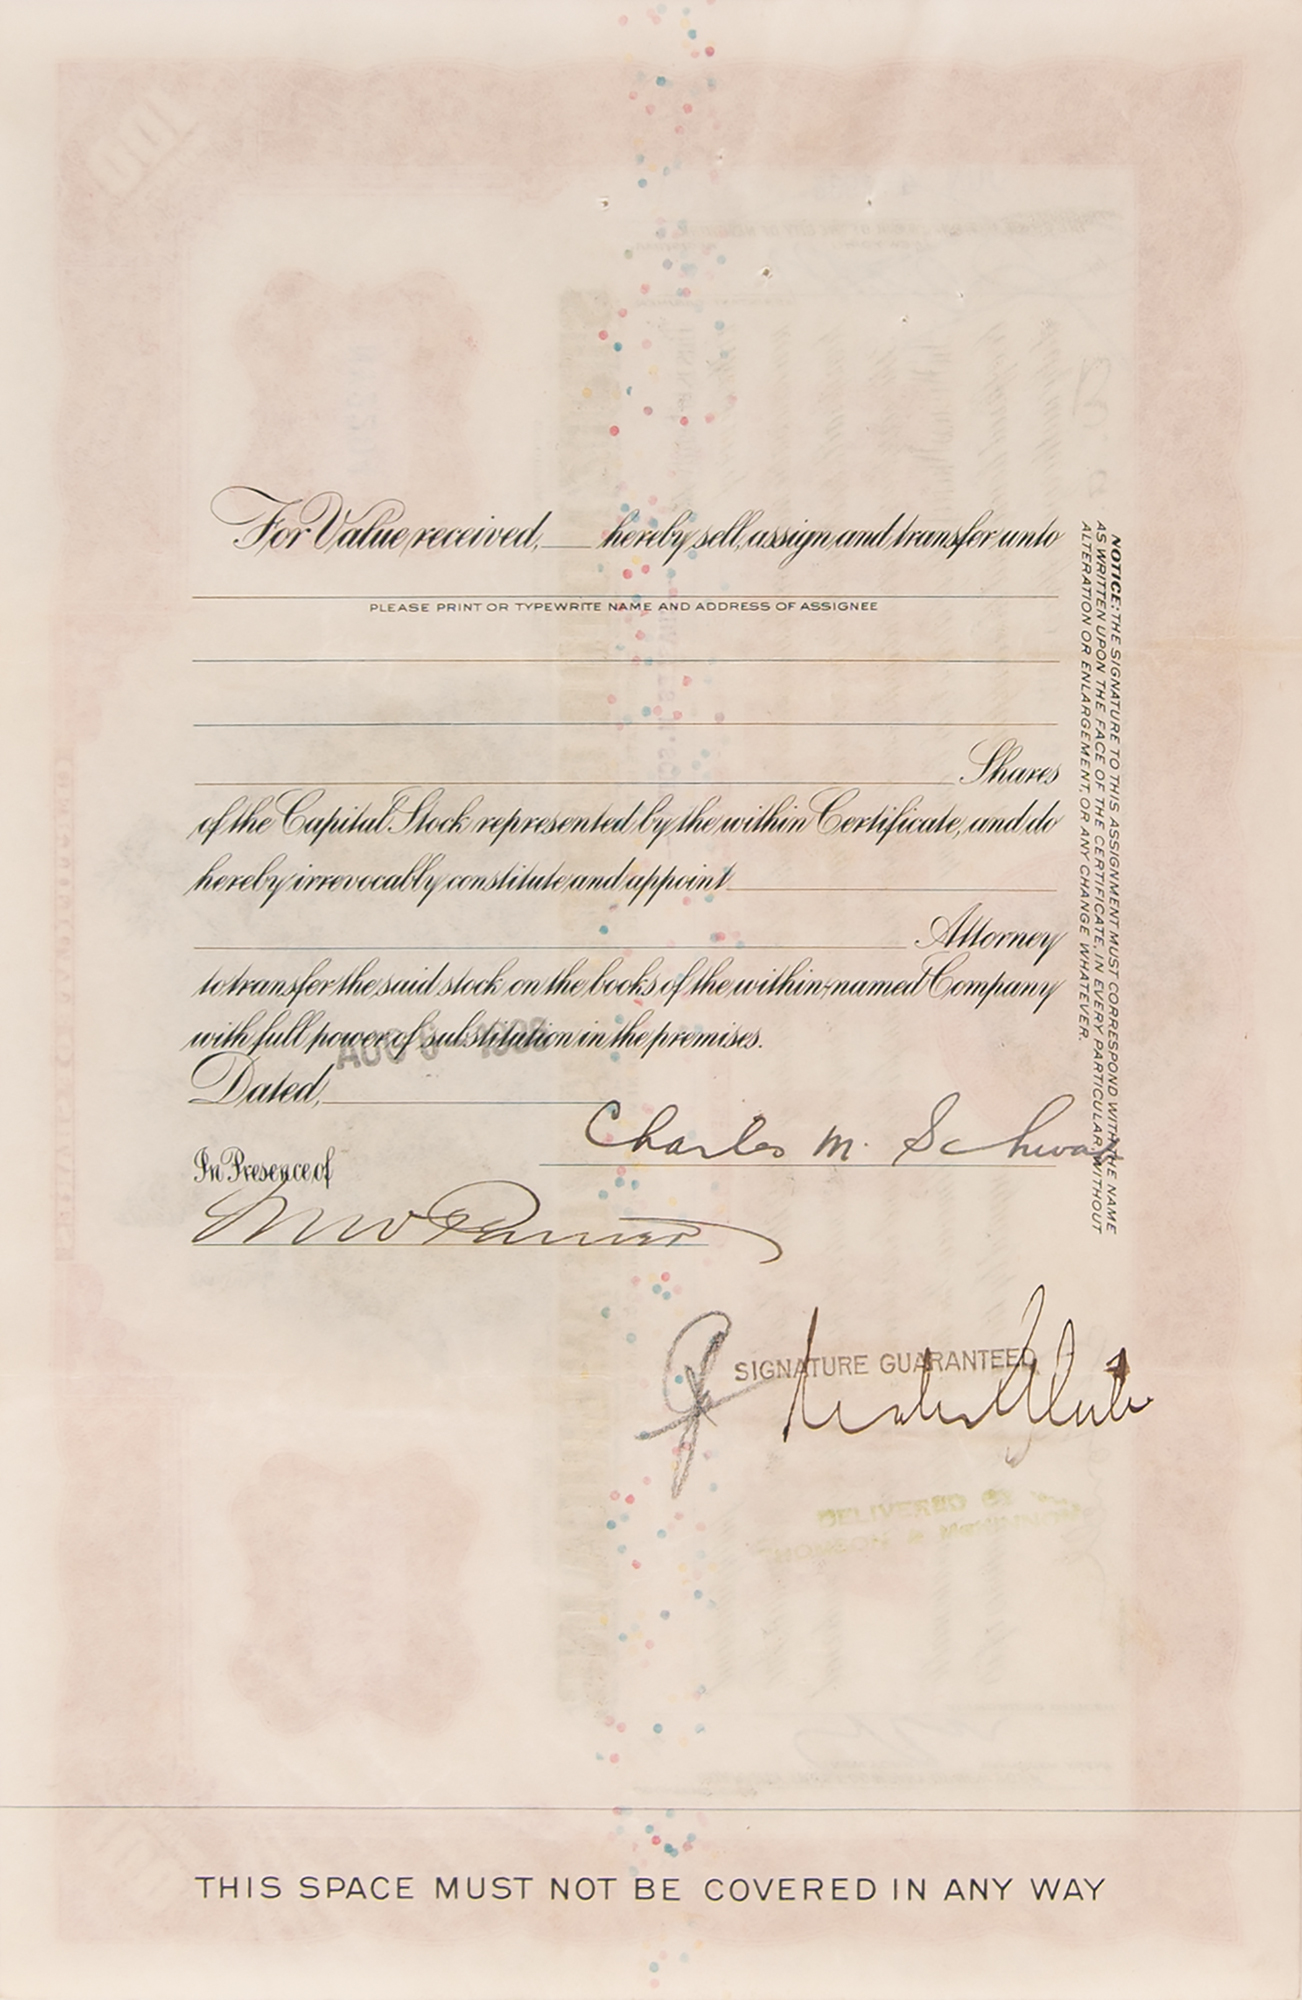 For Value received, hereby sell, assign and transfer unto
PLEASE PRINT OR TYPEWRITE NAME AND ADDRESS OF ASSIGNEE
Shares
of the Capital Stock represented by the within Certificate, and do
hereby irrevocably constitute and appoint
Attorney
to transfer the said stock on the books of the within-named Company
with full power of substitution in the premises.
AUG
Dated,
Charles M. Schwab
In Presence of
SIGNATURE GUARANTEED
DELIVERED BY
THIS SPACE MUST NOT BE COVERED IN ANY WAY
NOTICE: THE SIGNATURE TO THIS ASSIGNMENT MUST CORRESPOND WITH THE NAME
AS WRITTEN UPON THE FACE OF THE CERTIFICATE, IN EVERY PARTICULAR, WITHOUT
ALTERATION OR ENLARGEMENT, OR ANY CHANGE WHATEVER.